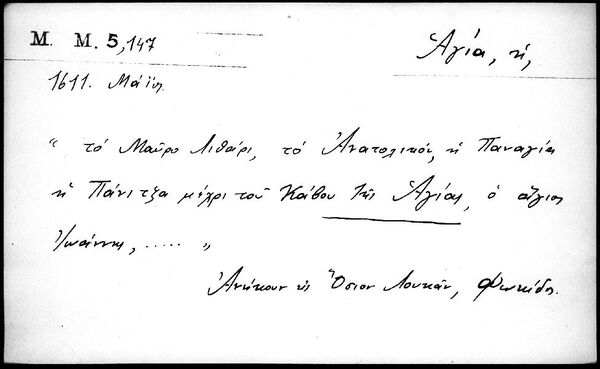 M. M. 5,147
Ἁγία, ἡ,
1611. Μάϊος
" τό Μαῦρο Λιθάρι, τό Ἀνατολικόν, ἡ Παναγία
ἡ Πάνιτζα μέχρι τοῦ Κάβου τῆς Ἁγίας, ὁ ἅγιος
Ἰωάννης, ..... "
Ἀνήκουν εἰς Ὅσιον Λουκᾶν, Φωκίδος.